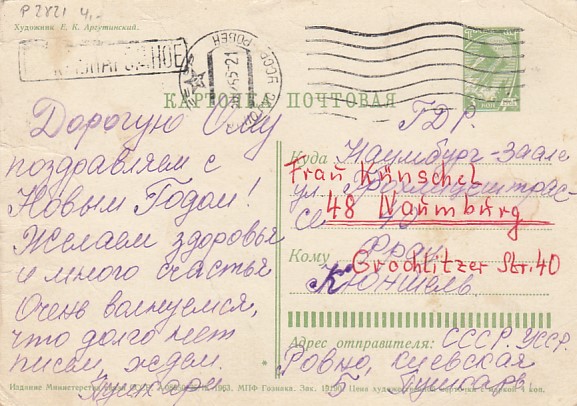 Р 2821 4,-
Художник Е. К. Аргутинский.
МЕЖДУНАРОДНОЕ
КАРТОЧКА ПОЧТОВАЯ
Дорогую Олю
поздравляем с
Новым Годом!
Желаем здоровья
и много счастья
Очень волнуемся,
что долго нет
писем, ждем.
ГДР.
Куда Наумбург-Заале
Frau Künschel
ул.
48 Naumburg
Кому Фрау
Grochlitzer Str. 40
Кюншель.
Адрес отправителя: СССР. УССР.
Ровно, киевская
Издание Министерства связи СССР. 1963. МПФ Гознака. Зак. Цена художественной карточки с маркой 4 коп.